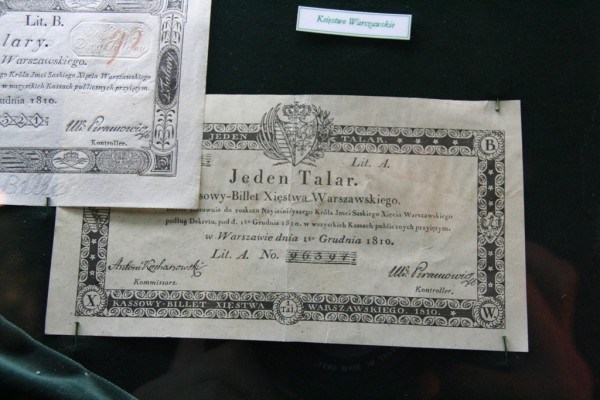 Księstwo Warszawskie
Lit. B.
lary.
Warszawskiego.
Króla Jmci Saskiego Xięcia Warszawskiego
w wszystkich Kassach publicznych przyiętym.
dnia 1810.
Kontroller.
JEDEN TALAR
B
Lit. A.
Jeden Talar.
ssowy-Billet Xięstwa Warszawskiego,
do rozkazu Nayiaśnieyszego Króla Jmci Saskiego Xięcia Warszawskiego
podług Dekretu, pod d. 1go Grudnia 1810. w wszystkich Kassach publicznych przyiętym.
w Warszawie dnia 1go Grudnia 1810.
Lit. A. No. 96397
Kommissarz.
Kontroller.
X
1
Tal.
W
KASSOWY-BILLET XIĘSTWA WARSZAWSKIEGO. 1810.